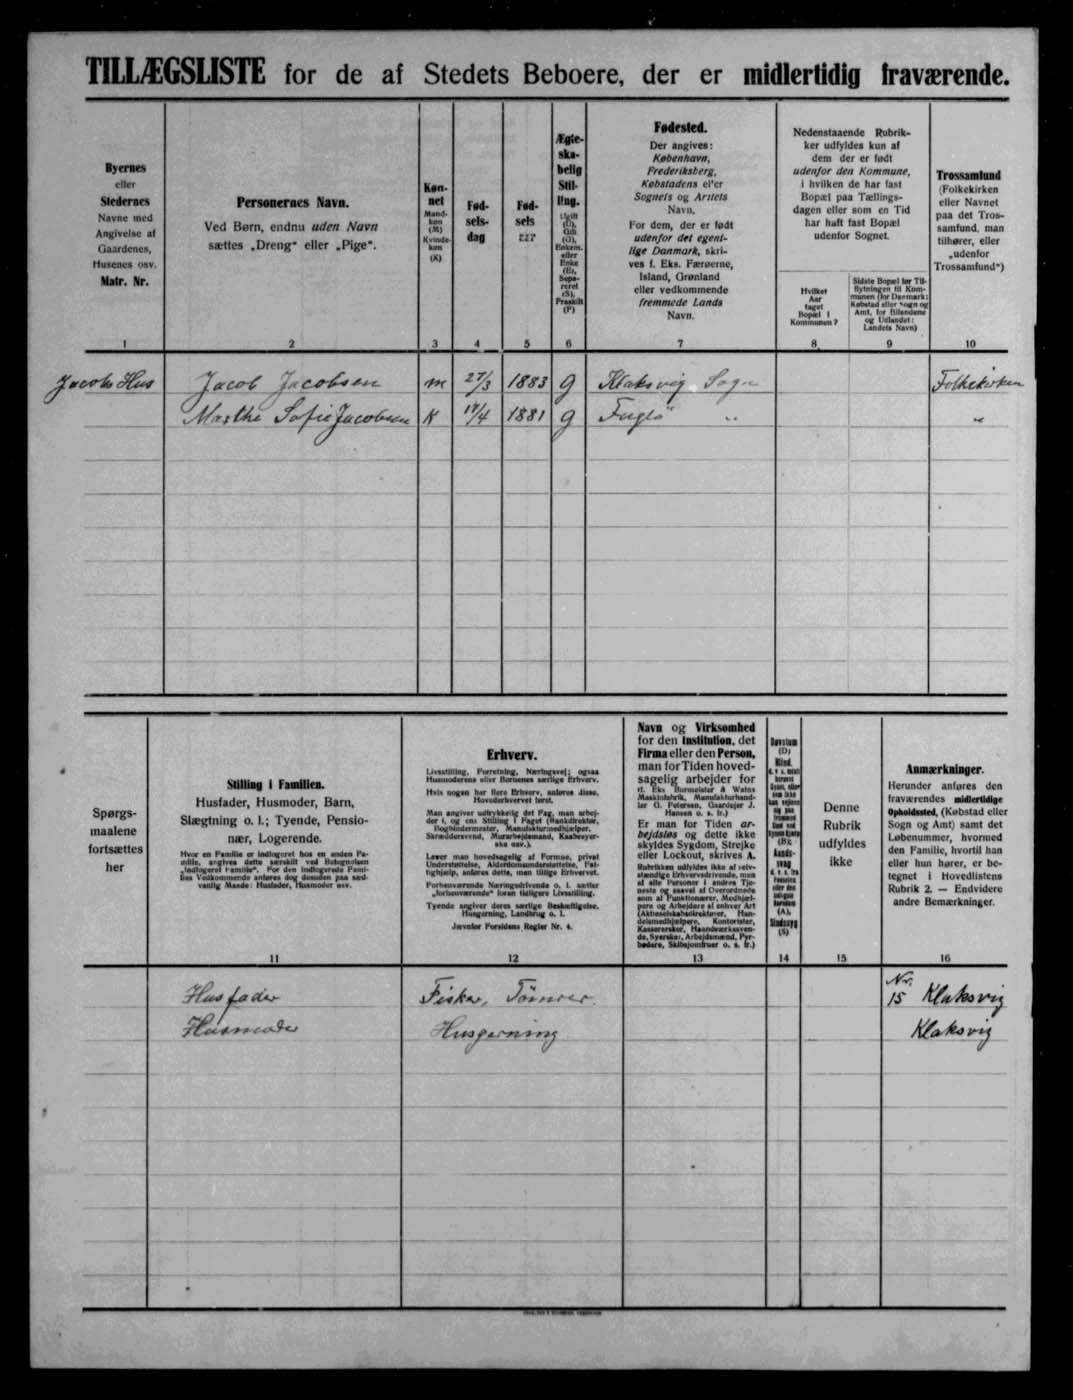 TILLÆGSLISTE for de af Stedets Beboere, der er midlertidig fraværende.
Byernes
eller
Stedernes
Navne med
Angivelse af
Gaardenes,
Husenes osv.
Matr. Nr.
1
Personernes Navn.
Ved Børn, endnu uden Navn
sættes „Dreng“ eller „Pige“.
2
Køn-
net
Mand-
køn
(M)
Kvinde-
køn
(K)
3
Fød-
sels-
dag
4
Fød-
sels
5
Ægte-
ska-
belig
Stil-
ling.
Ugift
(U),
Gift
(G),
Enkem.
eller
Enke
(E),
Sepa-
reret
(S),
Fraskilt
(F)
6
Fødested.
Der angives:
København,
Frederiksberg,
Købstadens eller
Sognets og Amtets
Navn.
For dem, der er født
udenfor det egent-
lige Danmark, skri-
ves f. Eks. Færøerne,
Island, Grønland
eller vedkommende
fremmede Lands
Navn.
7
Nedenstaaende Rubrik-
ker udfyldes kun af
dem der er født
udenfor den Kommune,
i hvilken de har fast
Bopæl paa Tællings-
dagen eller som en Tid
har haft fast Bopæl
udenfor Sognet.
Hvilket
Aar
taget
Bopæl i
Kommunen?
8
Sidste Bopæl før Til-
flytningen til Kom-
munen (for Danmark:
Købstad eller Sogn og
Amt, for Bilandene
og Udlandet:
Landets Navn)
9
Trossamfund
(Folkekirken
eller Navnet
paa det Tros-
samfund, man
tilhører, eller
„udenfor
Trossamfund“)
10
Jacobs Hus Jacob Jacobsen m 27/3 1883 g Klaksvig Sogn Folkekirken
Marthe Sofie Jacobsen K /4 1881 g Fuglö „ „
Spørgs-
maalene
fortsættes
her
Stilling i Familien.
Husfader, Husmoder, Barn,
Slægtning o. l.; Tyende, Pensio-
nær, Logerende.
Hvor en Familie er indlogeret hos en anden Fa-
milie, angives dette særskilt ved Betegnelsen
„indlogeret Familie“. For den indlogerede Fami-
lies Vedkommende anføres dog desuden paa sæd-
vanlig Maade: Husfader, Husmoder osv.
11
Erhverv.
Livsstilling, Forretning, Næringsvej; ogsaa
Husmoderens eller Børnenes særlige Erhverv.
Hvis nogen har flere Erhverv, anføres disse,
Hovederhvervet først.
Man angiver udtrykkelig det Fag, man arbej-
der i, og ens Stilling i Faget (Bankdirektør,
Bogbindermester, Manufakturmedhjælper,
Skræddersvend, Murarbejdsmand, Kaabesyer-
ske osv.).
Lever man hovedsagelig af Formue, privat
Understøttelse, Alderdomsunderstøttelse, Fat-
tighjælp, anføres dette, men tillige Erhvervet.
Forhenværende Næringsdrivende o. l. sætter
„forhenværende“ foran tidligere Livsstilling.
Tyende angiver deres særlige Beskæftigelse,
Husgerning, Landbrug o. l.
Jævnfør Forsidens Regler Nr. 4.
12
Navn og Virksomhed
for den Institution, det
Firma eller den Person,
man for Tiden hoved-
sagelig arbejder for
(f. Eks Burmeister & Wains
Maskinfabrik, Manufakturhand-
ler G. Petersen, Gaardejer J.
Hansen o. s. fr.)
Er man for Tiden ar-
bejdsløs og dette ikke
skyldes Sygdom, Strejke
eller Lockout, skrives A.
Rubrikken udfyldes ikke af selv-
stændige Erhvervsdrivende, men
af alle Personer i andres Tje-
neste og saavel af Overordnede
som af Funktionærer, Medhjæl-
pere og Arbejdere af enhver Art
(Aktieselskabsdirektører, Han-
delsmedhjælpere, Kontorister,
Kassererske, Haandværkssven-
de, Syersker, Arbejdsmænd, Fyr-
bødere, Skibsjomfruer o. s. fr.)
13
Døvstum
(D)
Blind,
(B);
Aands-
svag
(A),
Sindssyg
(S)
14
Denne
Rubrik
udfyldes
ikke
15
Anmærkninger.
Herunder anføres den
fraværendes midlertidige
Opholdssted, (Købstad eller
Sogn og Amt) samt det
Løbenummer, hvormed
den Familie, hvortil han
eller hun hører, er be-
tegnet i Hovedlistens
Rubrik 2. — Endvidere
andre Bemærkninger.
16
Husfader Fisker, Tömrer. Nr. 15 Klaksvig
Husmoder Husgerning Klaksvig